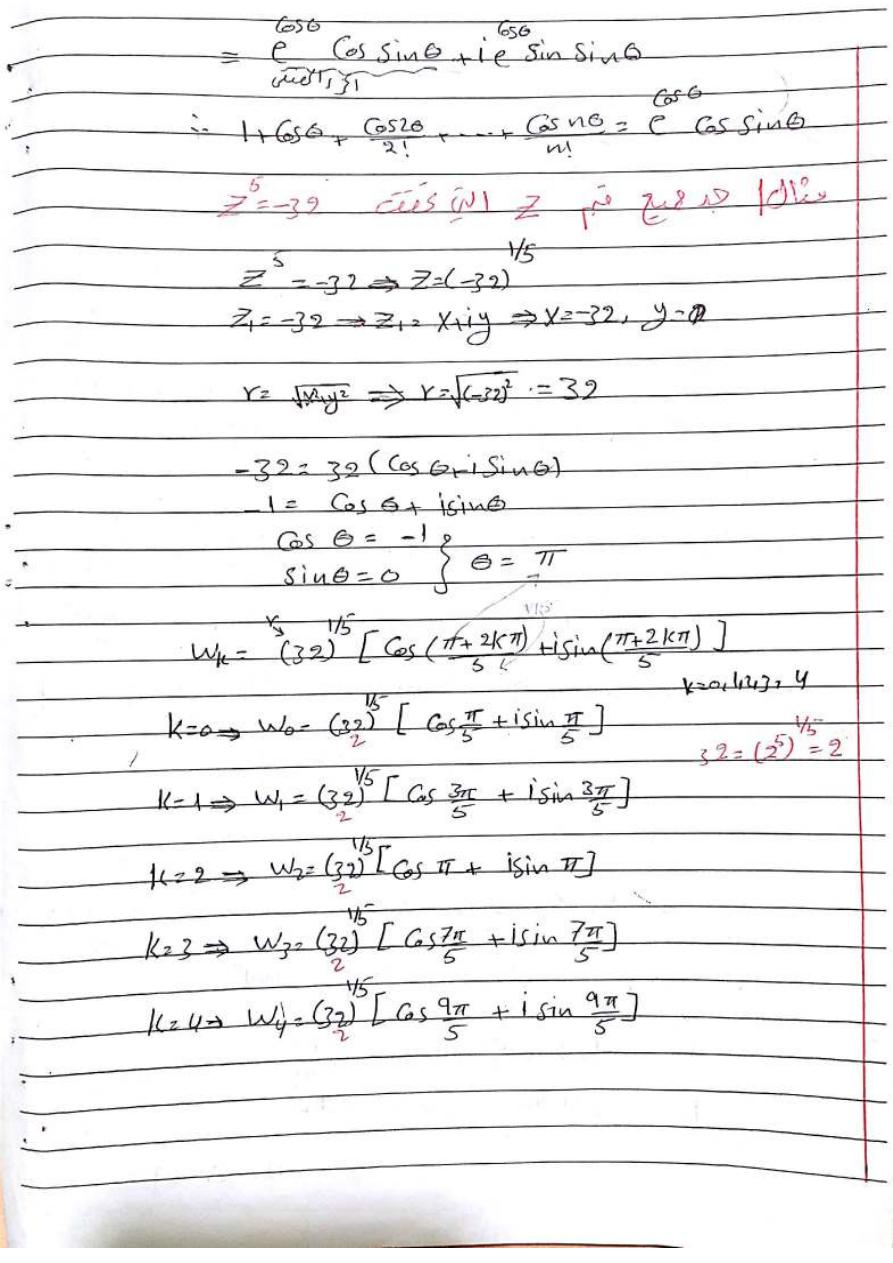 = e^{cosθ} cos sinθ + i e^{cosθ} sin sinθ
∴ 1 + cosθ + cos2θ/2! + .... + cos nθ/n! = e^{cosθ} cos sinθ
مثال/ جد جميع قيم Z التي حققت Z^5 = -32
Z^5 = -32 ⇒ Z = (-32)^{1/5}
Z₁ = -32 → Z₁ = x+iy ⇒ x = -32, y = 0
r = √(x²+y²) ⇒ r = √(-32)² = 32
-32 = 32 (cos θ + i sinθ)
-1 = cos θ + i sinθ
cos θ = -1
sinθ = 0 } θ = π
W_k = (32)^{1/5} [cos (π+2kπ)/5 + i sin (π+2kπ)/5]
k=0,1,2,3,4
k=0 ⇒ W₀ = (32)^{1/5} [cos π/5 + i sin π/5]
2
32 = (2^5)^{1/5} = 2
k=1 ⇒ W₁ = (32)^{1/5} [cos 3π/5 + i sin 3π/5]
2
k=2 ⇒ W₂ = (32)^{1/5} [cos π + i sin π]
2
k=3 ⇒ W₃ = (32)^{1/5} [cos 7π/5 + i sin 7π/5]
2
k=4 → W₄ = (32)^{1/5} [cos 9π/5 + i sin 9π/5]
2